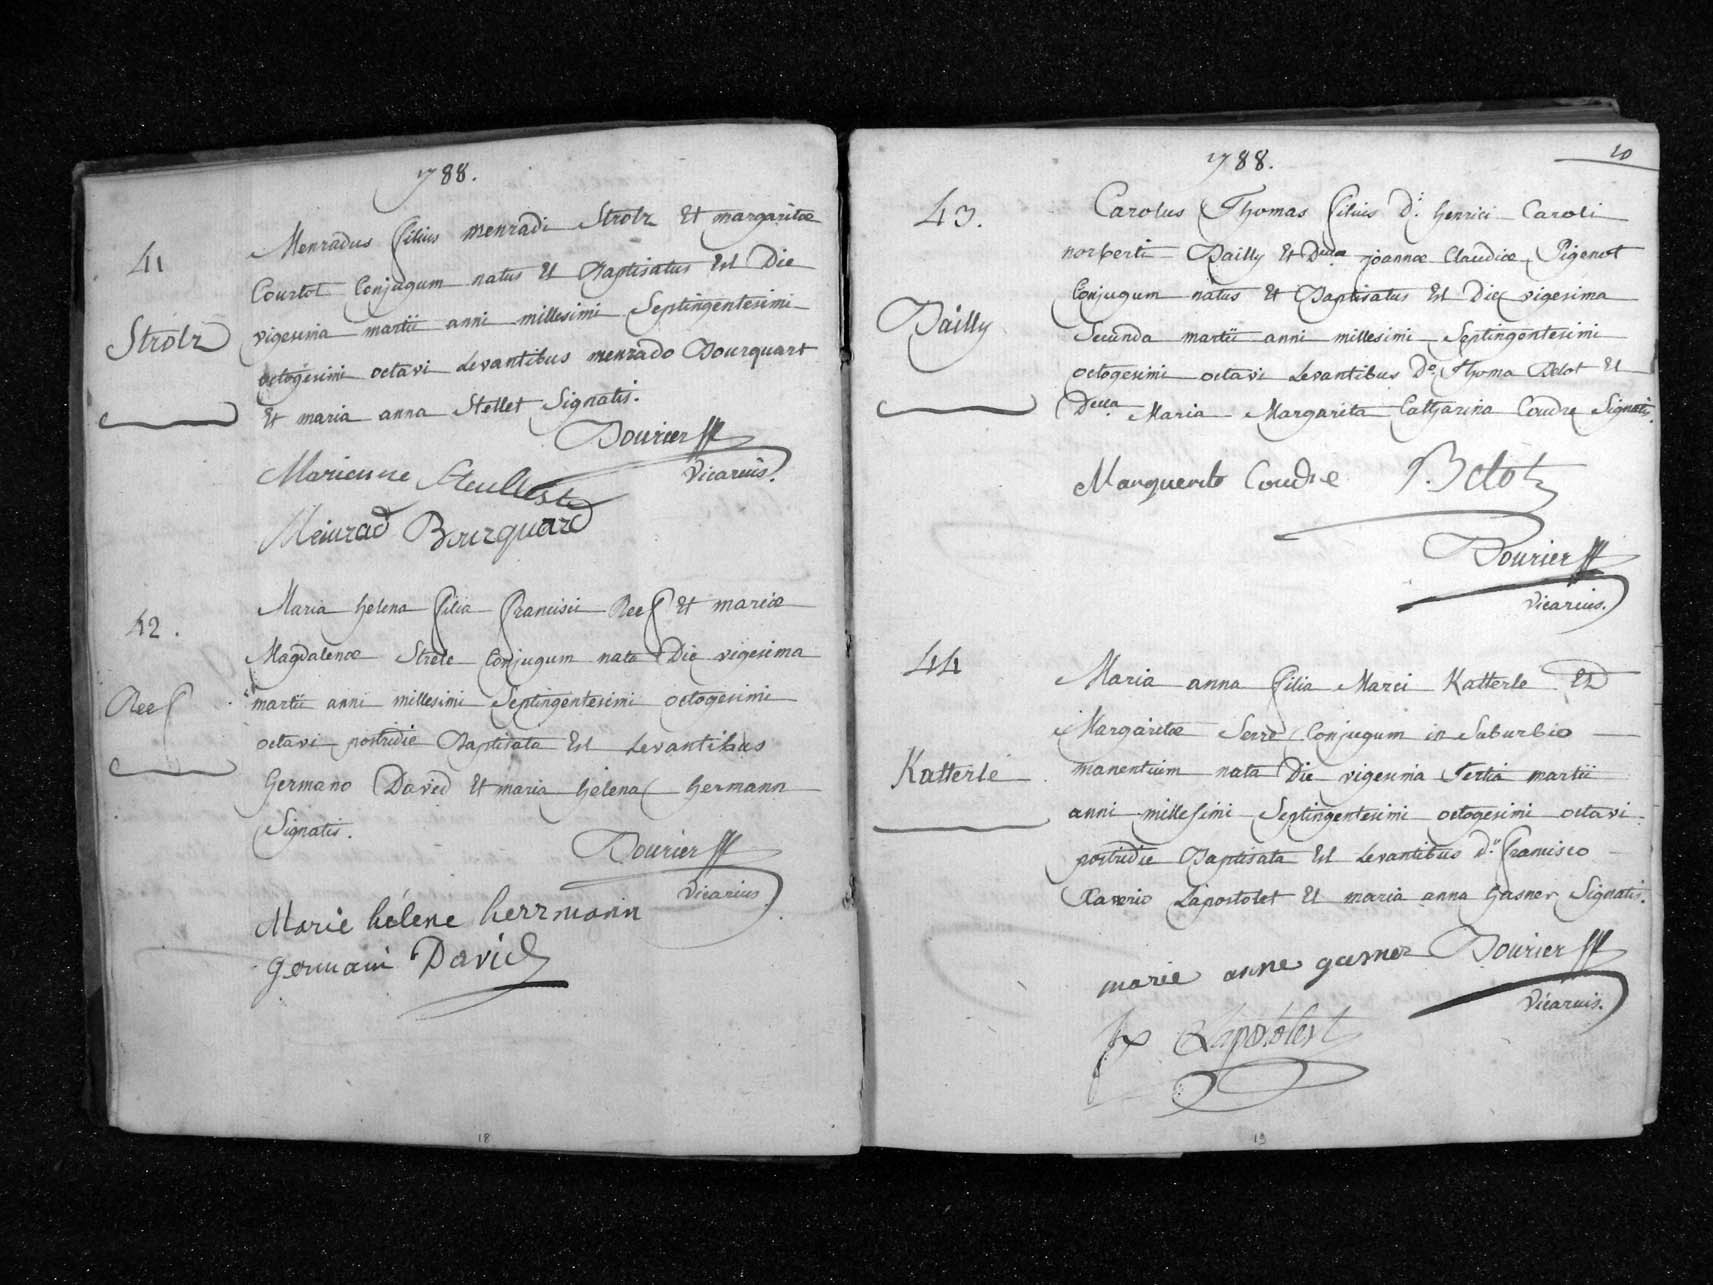 1788.
41
Strolz
Menradus filius menradi Strolz Et margaritæ
Courtot Conjugum natus Et Baptisatus Est Die
vigesima martii anni millesimi Septingentesimi
octogesimi octavi Levantibus menrado Bourquart
Et maria anna Stellet Signatis.
Bourier
Vicarius.
Marienne
Meinrad Bourquard
42.
Reef
Maria helena filia francisci Reef Et mariæ
Magdalenæ Strele Conjugum nata Die vigesima
martii anni millesimi Septingentesimi octogesimi
octavi postridie Baptisata Est Levantibus
Germano David Et maria helena hermann
Signatis.
Bourier
Vicarius.
Marie hélene herrmann
germain David
18
1788.
20
43.
Bailly
Carolus Thomas filius D.i henrici Caroli
norberti Bailly Et Dnæ joannæ Claudiæ Pigenot
Conjugum natus Et Baptisatus Est Die vigesima
Secunda martii anni millesimi Septingentesimi
octogesimi octavi Levantibus D.o Thoma Belot Et
Maria Margarita Catharina Coudre Signatis.
Marguerite Coudre Belot
Bourier
Vicarius.
44
Katterlé
Maria anna filia Marci Katterle Et
Margaritæ Serre Conjugum in Suburbio
manentium nata Die vigesima Tertia martii
anni millesimi Septingentesimi octogesimi octavi
postridie Baptisata Est Levantibus d.o francisco
Xaverio Lapostolet Et maria anna Gasner Signatis.
marie anne gasner Bourier
Vicarius.
fx Lapostolest
19